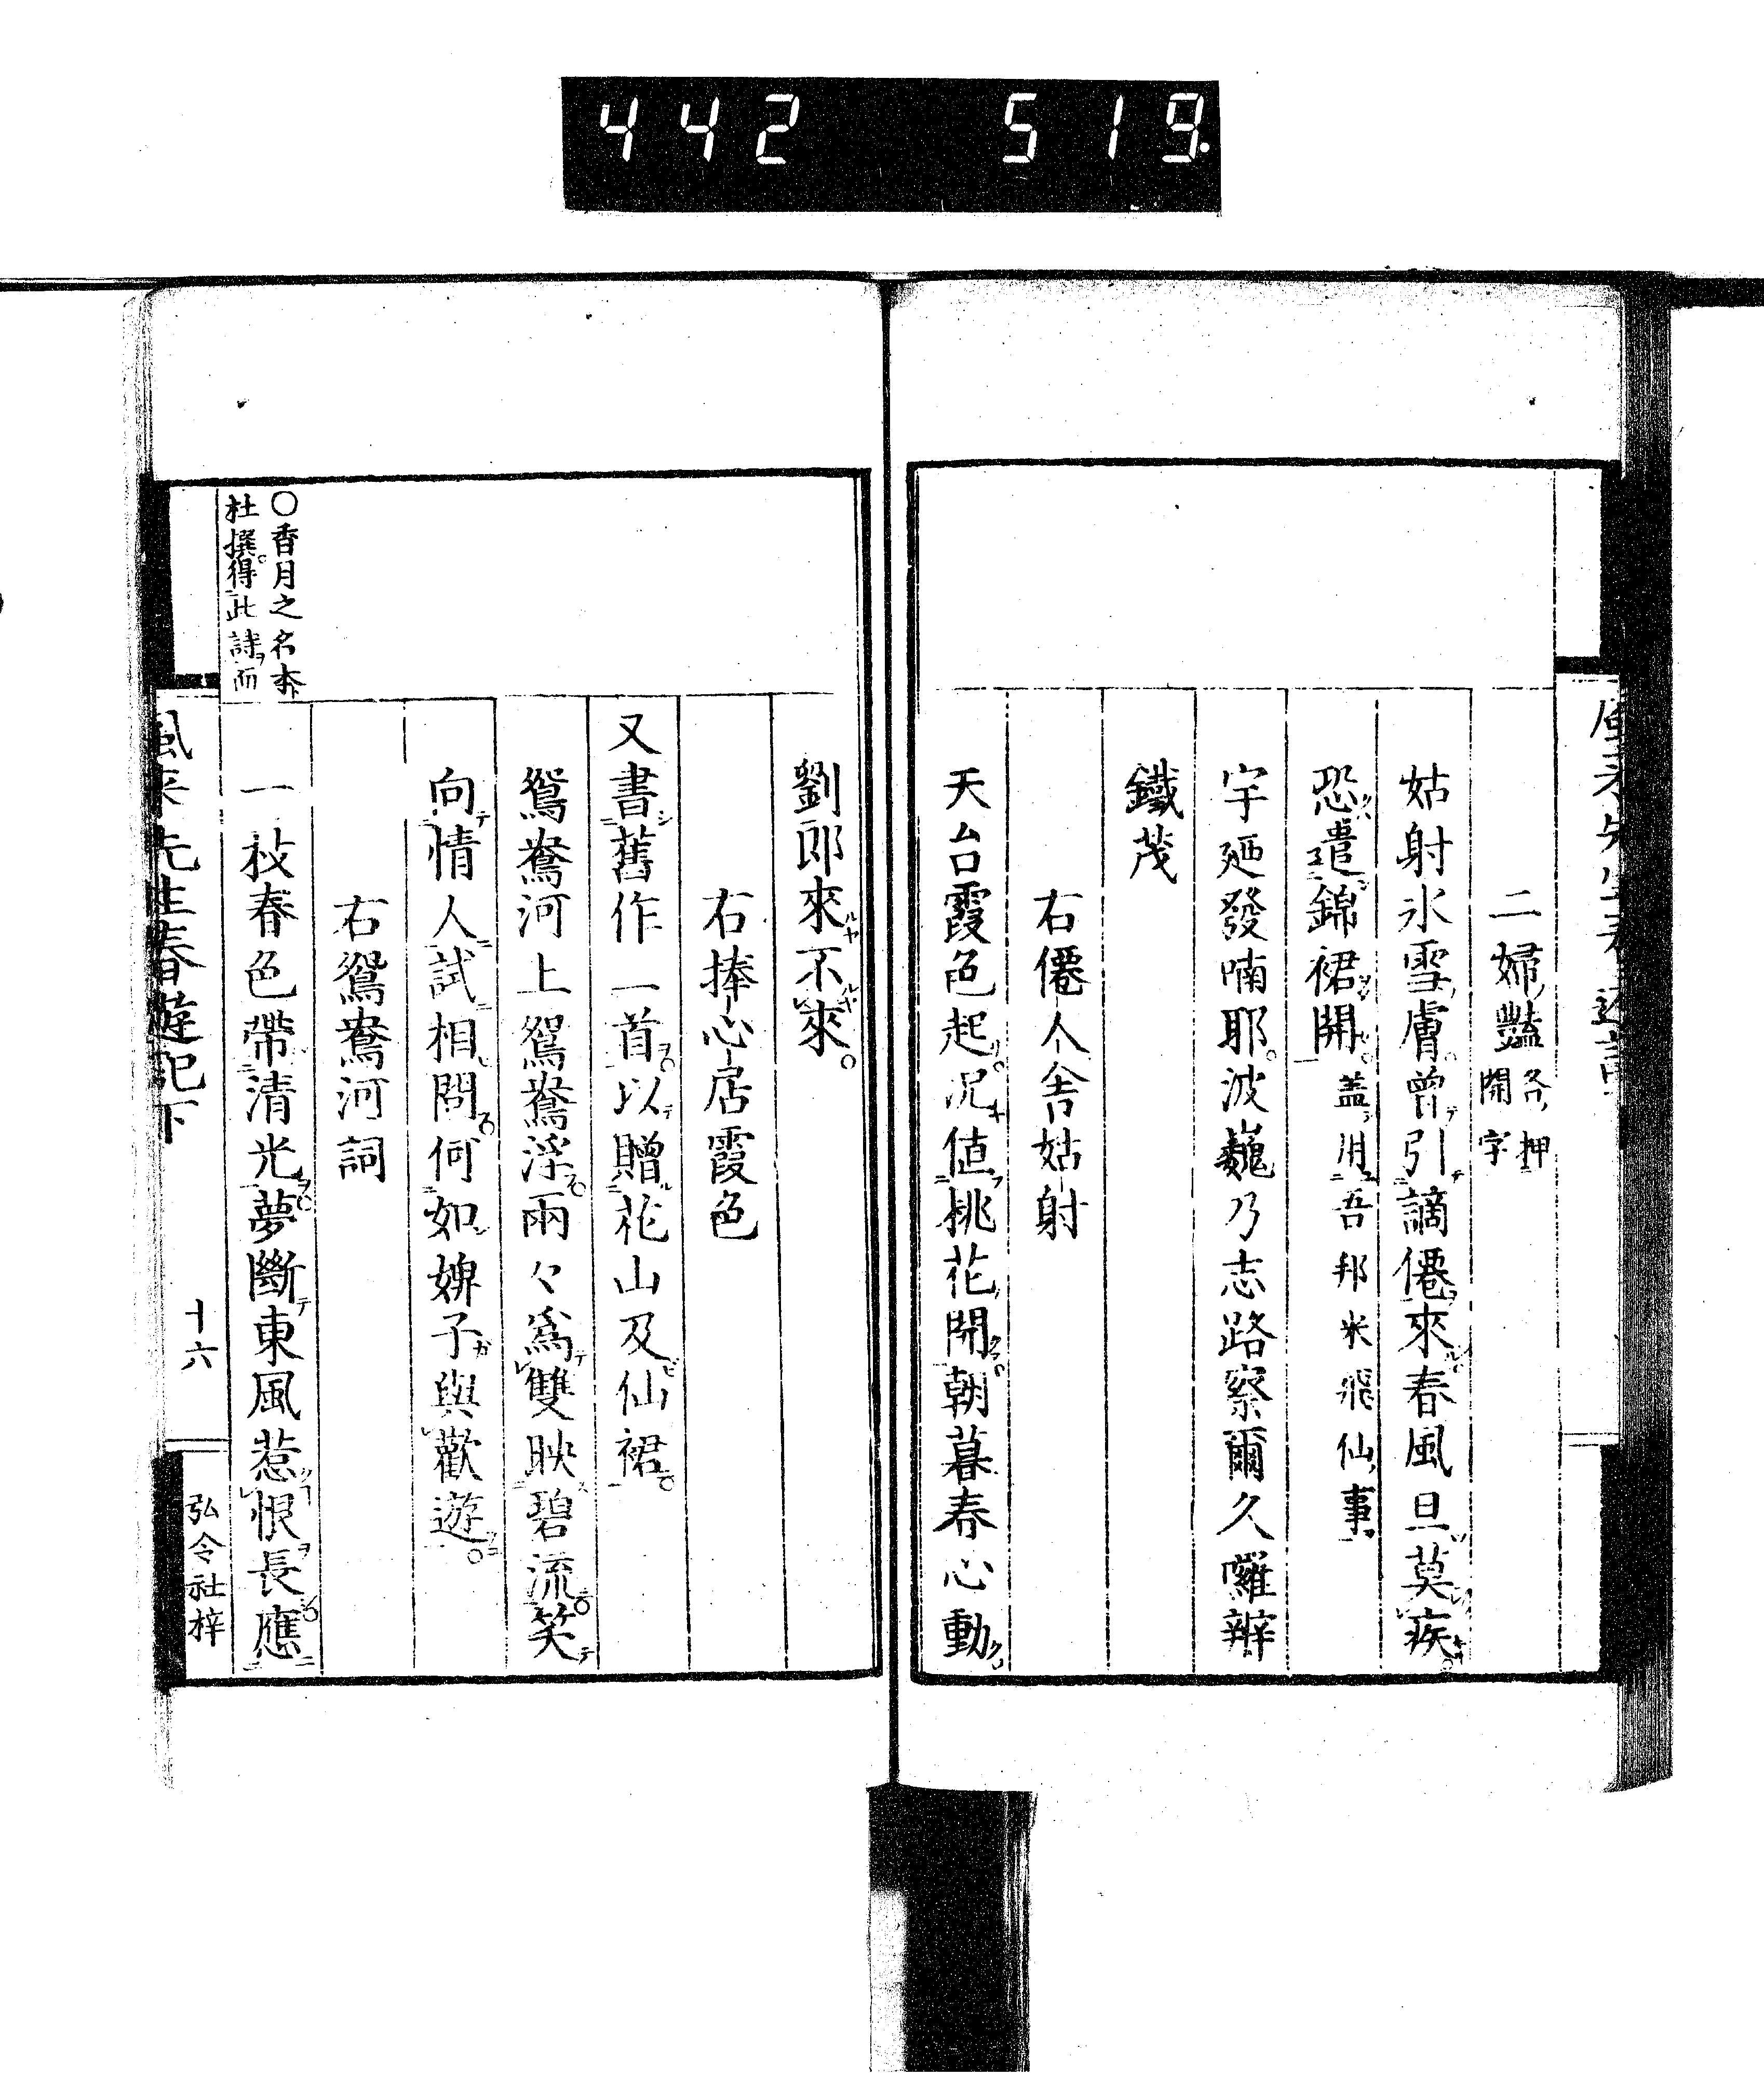 442 519.
二婦豔各押開字
姑射氷雪膚曾引謫僊來春風旦莫疾
恐遣錦裙開盖用吾邦米飛仙事
宇廼發喃耶波巍乃志路察爾久囉辨
鐵茂
右僊人舍姑射
天台霞色起況値桃花開朝暮春心動
劉郎來不來
右捧心居霞色
又書舊作一首以贈花山及仙裙
鴛鴦河上鴛鴦浮兩々爲雙映碧流笑
向情人試相問何如婢子與歡遊
右鴛鴦河詞
〇香月之名本
杜撰得此詩而
一枝春色帶清光夢斷東風惹恨長應
風来先生春遊記下
十六
弘令社梓